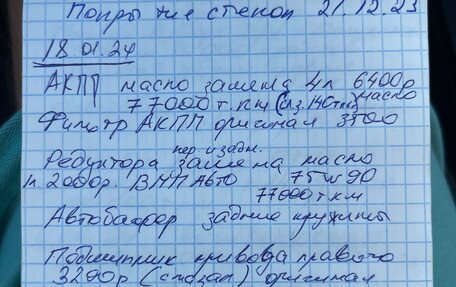 Покрытие стекол 21.12.23
18.01.24
АКПП масло замена 4л 6400р
масло
77000 т.км (сл.з. 140ткм)
Фильтр АКПП оригинал 3700
пер. и задн.
Редуктора замена масло
м. 2000р. ВМПАвто 75w90
77000 т км
Автобафер задние пружины
Подшипник привода правого
3290р (сказал) оригинал